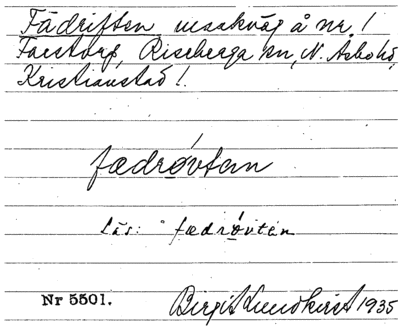 Fädriften utsakväg å nr. 1
Faestorp, Riseberga sn, N. Åsbo hd,
Kristianstad l.
fædrøvtæn
Läs: fædrøvtén
Nr 5501. Birgit Lundkvist 1935